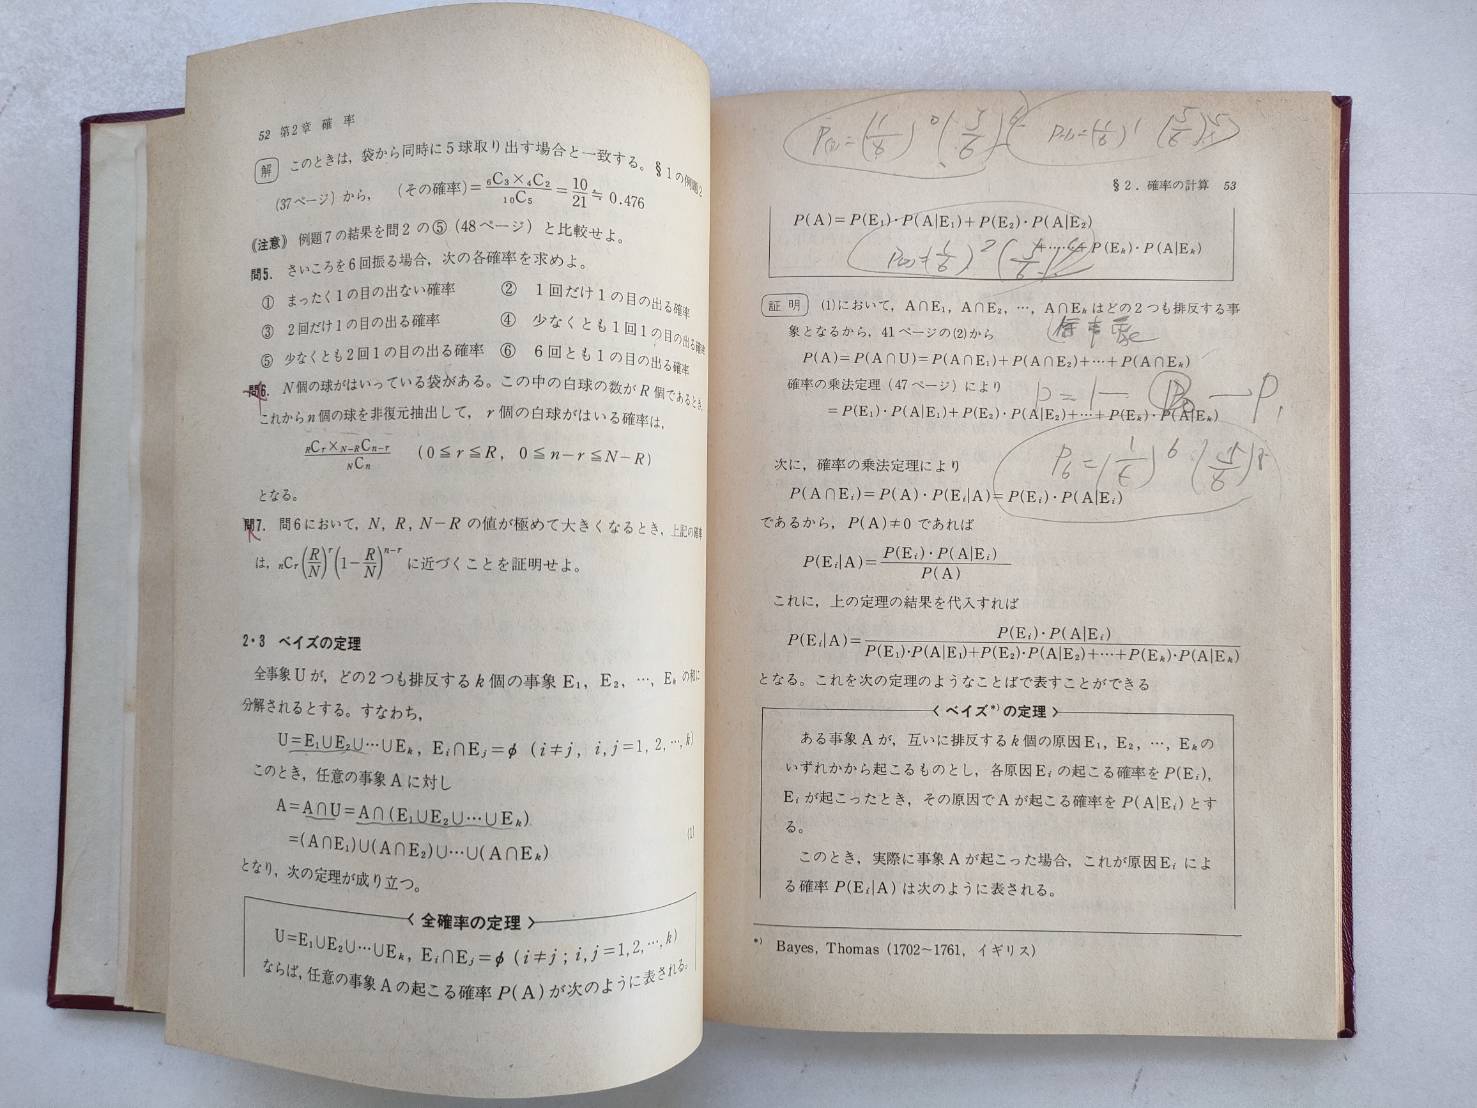 52 第2章 確 率
解 このときは，袋から同時に5球取り出す場合と一致する。§1の例題2
(37ページ) から， (その確率)=₆C₃×₄C₂/₁₀C₅=10/21≒0.476
《注意》 例題7の結果を問2の⑤(48ページ) と比較せよ。
問5. さいころを6回振る場合，次の各確率を求めよ。
① まったく1の目の出ない確率 ② 1回だけ1の目の出る確率
③ 2回だけ1の目の出る確率 ④ 少なくとも1回1の目の出る確率
⑤ 少なくとも2回1の目の出る確率 ⑥ 6回とも1の目の出る確率
問6. N個の球がはいっている袋がある。この中の白球の数がR個であるとき，
これからn個の球を非復元抽出して，r個の白球がはいる確率は，
RCr×N-RCn-r/NCn (0≦r≦R, 0≦n-r≦N-R)
となる。
問7. 問6において，N, R, N-Rの値が極めて大きくなるとき，上記の確率
は，nCr(R/N)^r(1-R/N)^(n-r)に近づくことを証明せよ。
2・3 ベイズの定理
全事象Uが，どの2つも排反するk個の事象E₁, E₂, …, Eₖの和に
分解されるとする。すなわち，
U=E₁∪E₂∪…∪Eₖ, Eᵢ∩Eⱼ=φ (i≠j, i, j=1, 2, …, k)
このとき，任意の事象Aに対し
A=A∩U=A∩(E₁∪E₂∪…∪Eₖ)
=(A∩E₁)∪(A∩E₂)∪…∪(A∩Eₖ) (1)
となり，次の定理が成り立つ。
〈全確率の定理〉
U=E₁∪E₂∪…∪Eₖ, Eᵢ∩Eⱼ=φ (i≠j; i, j=1, 2, …, k)
ならば，任意の事象Aの起こる確率P(A)が次のように表される。
§2. 確率の計算 53
P(A)=P(E₁)・P(A|E₁)+P(E₂)・P(A|E₂)
+…+P(Eₖ)・P(A|Eₖ)
証明 (1)において，A∩E₁, A∩E₂, …, A∩Eₖはどの2つも排反する事
象となるから，41ページの(2)から
P(A)=P(A∩U)=P(A∩E₁)+P(A∩E₂)+…+P(A∩Eₖ)
確率の乗法定理 (47ページ) により
P=1-P₀-P₁
=P(E₁)・P(A|E₁)+P(E₂)・P(A|E₂)+…+P(Eₖ)・P(A|Eₖ)
次に，確率の乗法定理により
P(A∩Eᵢ)=P(A)・P(Eᵢ|A)=P(Eᵢ)・P(A|Eᵢ)
であるから，P(A)≠0であれば
P(Eᵢ|A)=P(Eᵢ)・P(A|Eᵢ)/P(A)
これに，上の定理の結果を代入すれば
P(Eᵢ|A)=P(Eᵢ)・P(A|Eᵢ)/P(E₁)・P(A|E₁)+P(E₂)・P(A|E₂)+…+P(Eₖ)・P(A|Eₖ)
となる。これを次の定理のようなことばで表すことができる
〈ベイズ*)の定理〉
ある事象Aが，互いに排反するk個の原因E₁, E₂, …, Eₖの
いずれかから起こるものとし，各原因Eᵢの起こる確率をP(Eᵢ),
Eᵢが起こったとき，その原因でAが起こる確率をP(A|Eᵢ)とす
る。
このとき，実際に事象Aが起こった場合，これが原因Eᵢによ
る確率P(Eᵢ|A)は次のように表される。
*) Bayes, Thomas (1702～1761, イギリス)